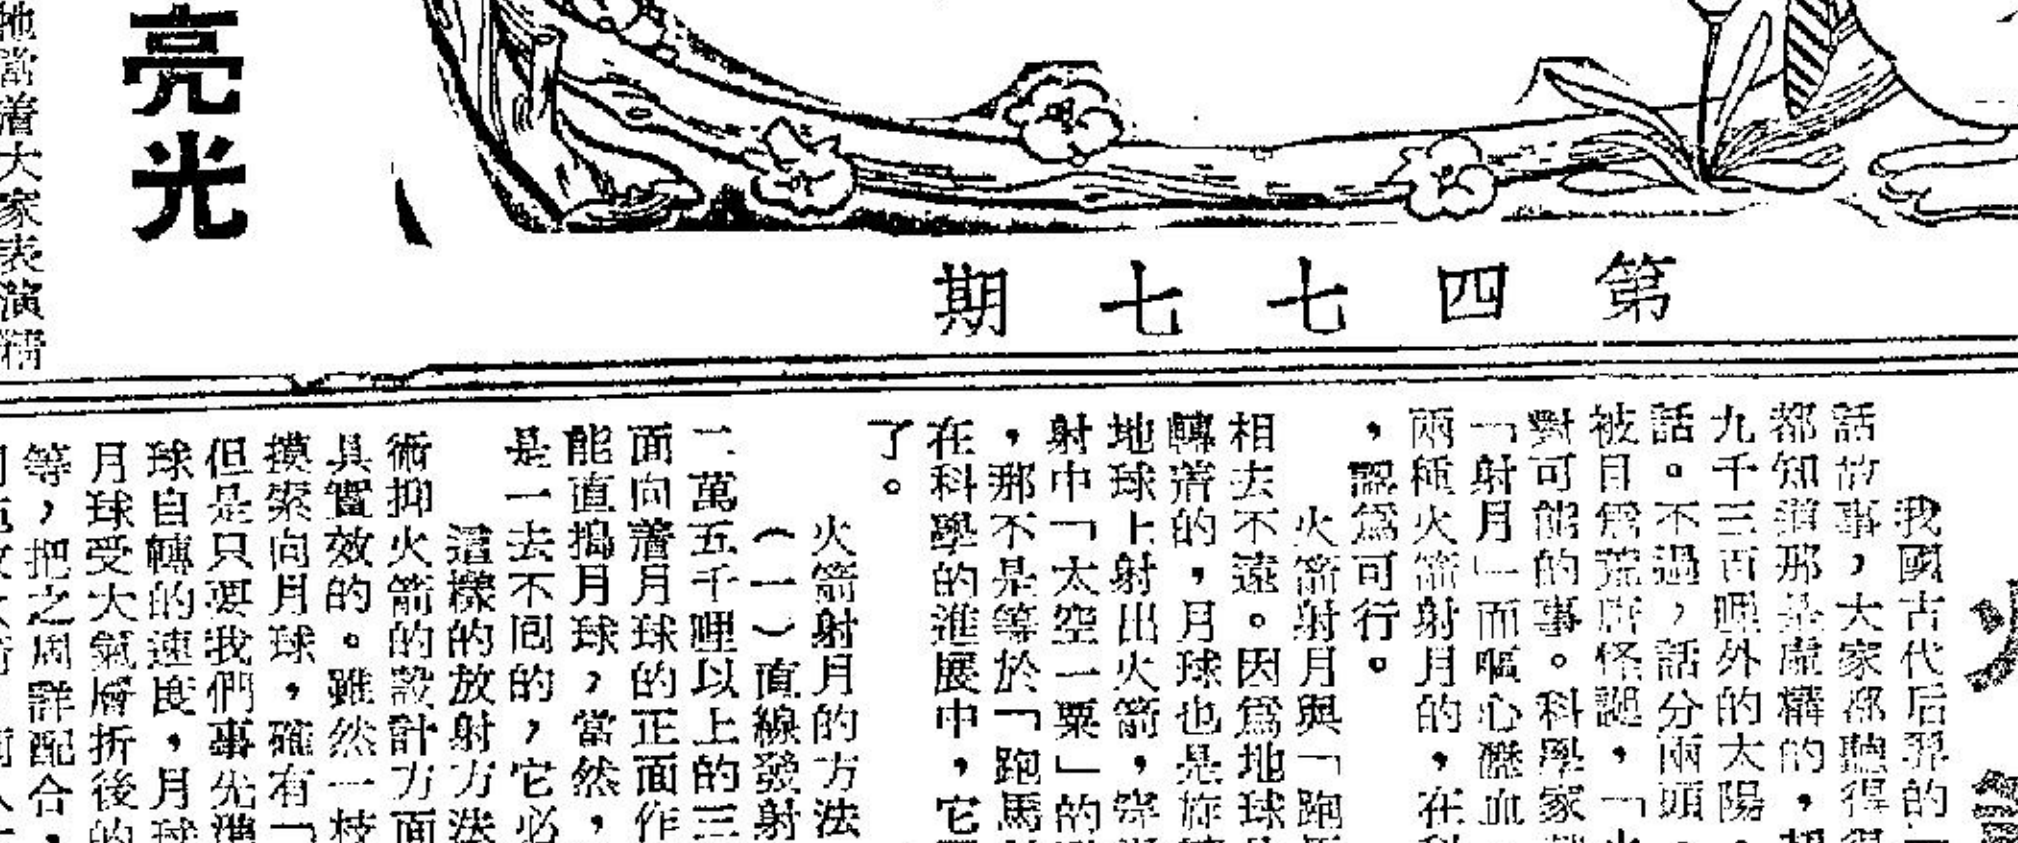 第四七七期
我國古代后羿的「
話故事，大家都聽得很
都知道那是虛構的，
九千三百哩外的太陽，
話。不過，話分兩頭，
被目爲荒唐怪誕，「火
對可能的事。科學家
「射月」而嘔心瀝血
兩種火箭射月的，在科
，認爲可行。
火箭射月與「跑馬
相去不遠。因爲地球
轉着的，月球也是旋轉
地球上射出火箭，
射中「太空一粟」的
，那不是等於「跑馬
在科學的進展中，它
了。
火箭射月的方法
（一）直線發射
二萬五千哩以上的三
面向着月球的正面作
能直搗月球，當然，
是一去不囘的，它必
這樣的放射方法
術抑火箭的設計方面
具實效的。雖然一枝
摸索向月球，確有「
但是只要我們事先準
球自轉的速度，月球
月球受大氣層折後的
等，把之周詳配合，
亮光
地當着大家表演精